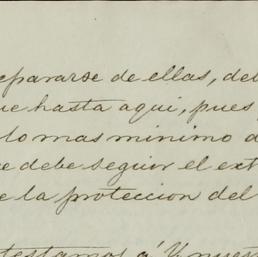 epararse de ellas, de
ue hasta aqui, pues
lo mas minimo d
e debe seguir el ext
e la proteccion del
testamos á V. nues